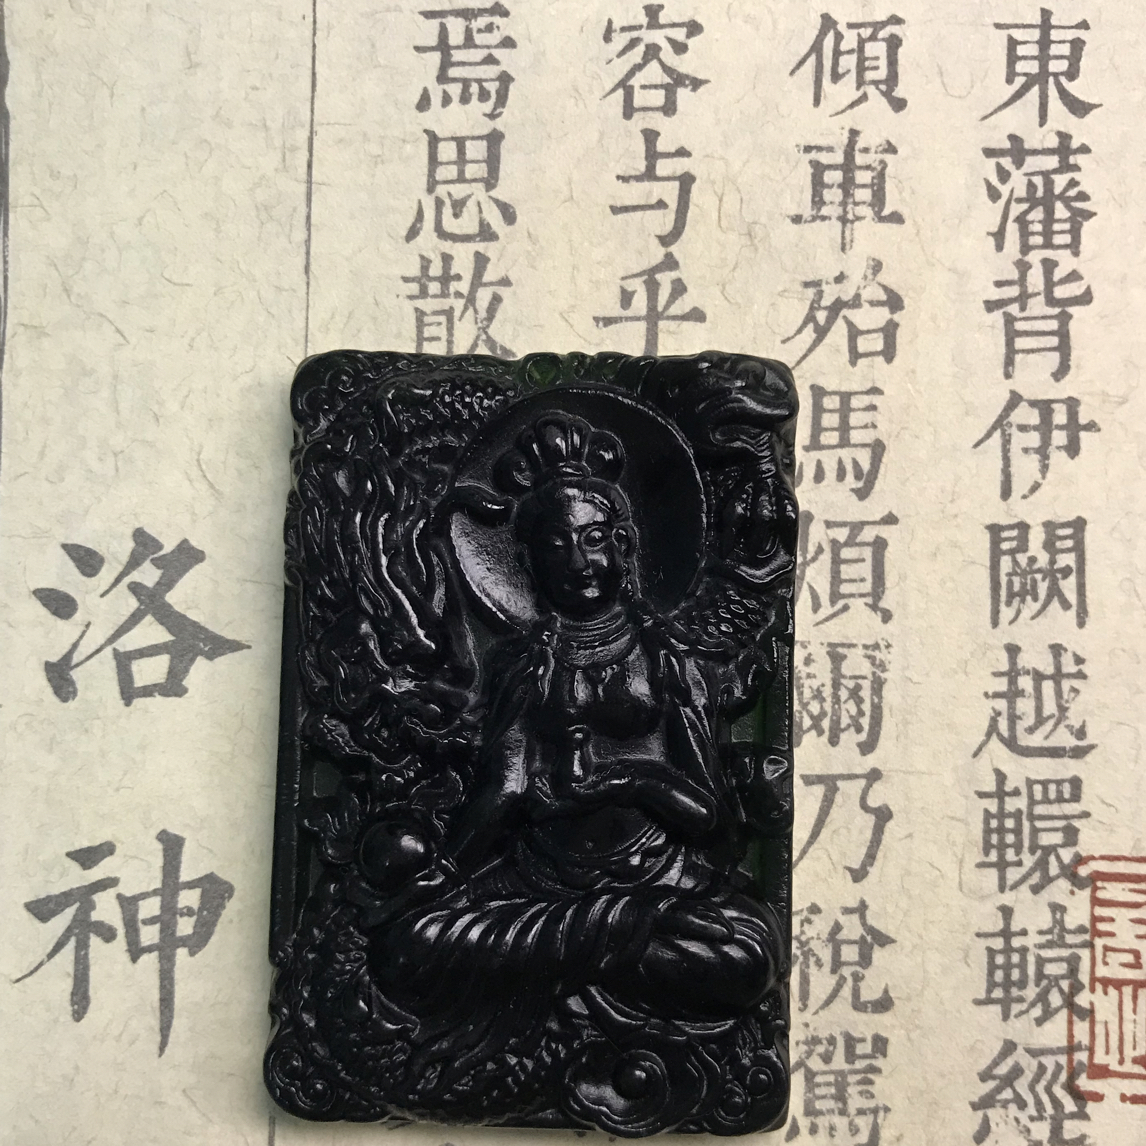 東藩背伊闕越轘轅經
傾車殆馬煩爾乃稅駕
容与乎
焉思散
洛神